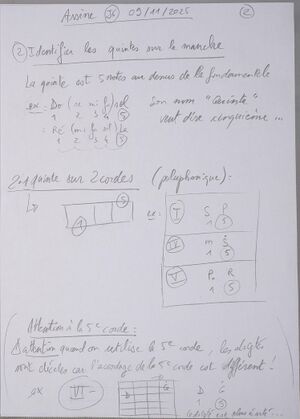 Assine 36 09/11/2025 2
2 Identifier les quintes sur le manche
La quinte est 5 notes au dessus de la fondamentale
ex: Do (re mi fa) sol
1 2 3 4 5
Son nom "Quinte"
veut dire cinquième...
: Ré (mi fa sol) La
1 2 3 4 5
2.1 quinte sur 2 cordes (polyphonique):
1 5
ex: I S P
1 5
IV m S
1 5
V P R
1 5
Attention à la 5e corde:
attention quand on utilise la 5e corde, les doigtés
sont décalés car l'accordage de la 5e corde est différent!
ex VI-
1 5
le doigté est plus écarté...